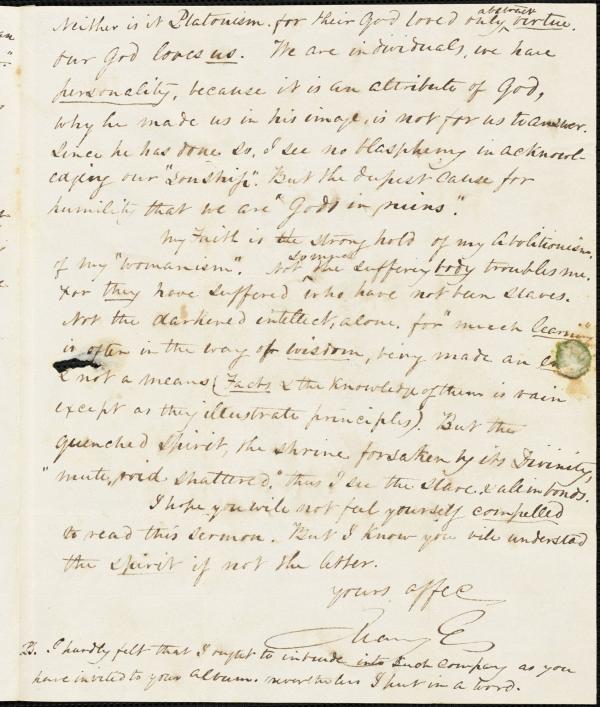 Neither is it Platonism. for their God loved only abstract virtue.
Our God loves us. We are individuals, we have
personality, because it is an attribute of God,
why he made us in his image, is not for us to answer.
Since he has done so, I see no blasphemy in acknowl-
edging our "Sonship". But the deepest cause for
humility that we are "Gods in ruins".
My Faith is the strong hold of my Abolitionism.
of my "womanism". Not the suffering body troubles me.
For they have suffered who have not been slaves.
Not the darkened intellect, alone. for "much learning"
is often in the way of wisdom, being made an
& not a means (Facts & the knowledge of them is vain
except as they illustrate principles). But the
quenched spirit, the shrine forsaken by its Divinity,
"mute, void shattered," thus I see the slave, & all in bonds.
I hope you will not feel yourself compelled
to read this sermon. But I know you will understad
the spirit if not the letter.
yours affec
Mary
PS. I hardly felt that I ought to intrude into such company as you
have invited to your album. nevertheless I put in a word.